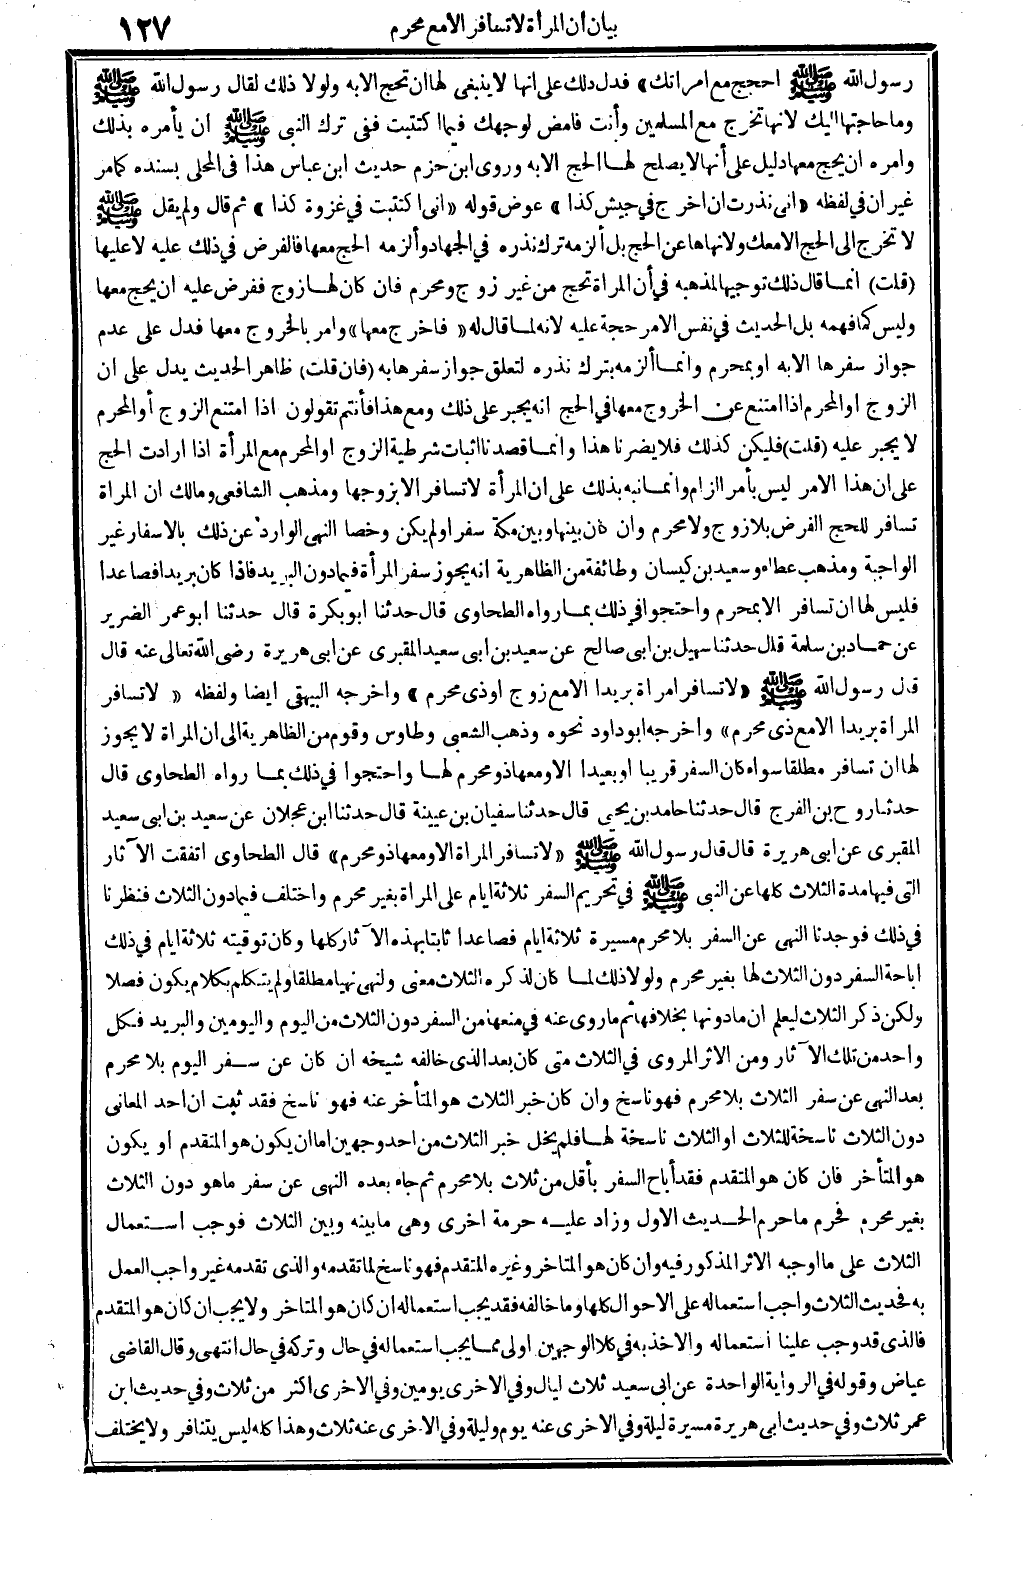 بيان أن المرأة لا تسافر الا مع محرم ١٢٧
رسول الله ﷺ احجج مع امرأتك» فدل ذلك على انها لا ينبغى لها ان تحج الا به ولولا ذلك لقال رسول الله ﷺ
وما حاجتها اليك لانها تخرج مع المسلمين وأنت فامض لوجهك فيما اكتتبت ففى ترك النبى ﷺ ان يأمره بذلك
وامره ان يحج معها دليل على أنها لا يصلح لها الحج الا به وروى ابن حزم حديث ابن عباس هذا فى المحلى بسنده كما مر
غير ان فى لفظه «انى نذرت ان اخرج في جيش كذا» عوض قوله «انى اكتتبت في غزوة كذا» ثم قال ولم يقل ﷺ
لا تخرج الى الحج الا معك ولا نهاها عن الحج بل ألزمه ترك نذره في الجهاد وألزمه الحج معها فالفرض في ذلك عليه لا عليها
(قلت) انما قال ذلك توجيها لمذهبه في أن المرأة تحج من غير زوج ومحرم فان كان لها زوج ففرض عليه ان يحج معها
وليس كما فهمه بل الحديث في نفس الامر حجة عليه لانه لما قال له «فاخرج معها» وامر بالخروج معها فدل على عدم
جواز سفرها الا به او بمحرم وانما ألزمه بترك نذره لتعلق جواز سفرها به (فان قلت) ظاهر الحديث يدل على ان
الزوج او المحرم اذا امتنع عن الخروج معها في الحج انه يجبر على ذلك ومع هذا فأنتم تقولون اذا امتنع الزوج أو المحرم
لا يجبر عليه (قلت) فليكن كذلك فلا يضرنا هذا وانما قصدنا اثبات شرطية الزوج او المحرم مع المرأة اذا ارادت الحج
على ان هذا الامر ليس بأمر الزام وانما نبه بذلك على ان المرأة لا تسافر الا بزوجها ومذهب الشافعى ومالك ان المراة
تسافر للحج الفرض بلا زوج ولا محرم وان كان بينها وبين مكة سفر او لم يكن وخصا النهى الوارد عن ذلك بالاسفار غير
الواجبة ومذهب عطاء وسعيد بن كيسان وطائفة من الظاهرية انه يجوز سفر المرأة فيما دون البريد فاذا كان بريدا فصاعدا
فليس لها ان تسافر الا بمحرم واحتجوا في ذلك بما رواه الطحاوى قال حدثنا ابو بكرة قال حدثنا ابو عمر الضرير
عن حماد بن سلمة قال حدثنا سهيل بن ابى صالح عن سعيد بن ابى سعيد المقبرى عن ابى هريرة رضى الله تعالى عنه قال
قال رسول الله ﷺ «لا تسافر امراة بريدا الا مع زوج او ذى محرم» واخرجه البيهقى ايضا ولفظه « لا تسافر
المراة بريدا الا مع ذى محرم» واخرجه ابو داود نحوه وذهب الشعبى وطاوس وقوم من الظاهرية الى ان المراة لا يجوز
لها ان تسافر مطلقا سواء كان السفر قريبا او بعيدا الا ومعها ذو محرم لها واحتجوا في ذلك بما رواه الطحاوى قال
حدثنا روح بن الفرج قال حدثنا حامد بن يحيى قال حدثنا سفيان بن عيينة قال حدثنا ابن عجلان عن سعيد بن ابى سعيد
المقبرى عن ابى هريرة قال قال رسول الله ﷺ «لا تسافر المراة الا ومعها ذو محرم» قال الطحاوى اتفقت الآثار
التى فيها مدة الثلاث كلها عن النبى ﷺ في تحريم السفر ثلاثة ايام على المراة بغير محرم واختلف فيما دون الثلاث فنظرنا
في ذلك فوجدنا النهى عن السفر بلا محرم مسيرة ثلاثة ايام فصاعدا ثابتا بهذه الآثار كلها وكان توقيته ثلاثة ايام في ذلك
اباحة السفر دون الثلاث لها بغير محرم ولولا ذلك لما كان لذكره الثلاث معنى ولنهى نهيا مطلقا ولم يتكلم بكلام يكون فصلا
ولكن ذكر الثلاث ليعلم ان ما دونها بخلافها ثم ما روى عنه في منعها من السفر دون الثلاث من اليوم واليومين والبريد فكل
واحد من تلك الآثار ومن الاثر المروى في الثلاث متى كان بعد الذى خالفه شيخه ان كان عن سفر اليوم بلا محرم
بعد النهى عن سفر الثلاث بلا محرم فهو ناسخ وان كان خبر الثلاث هو المتأخر عنه فهو ناسخ فقد ثبت ان احد المعانى
دون الثلاث ناسخة للثلاث او الثلاث ناسخة لها فلم يخل خبر الثلاث من احد وجهين اما ان يكون هو المتقدم او يكون
هو المتأخر فان كان هو المتقدم فقد أباح السفر بأقل من ثلاث بلا محرم ثم جاء بعده النهى عن سفر ما هو دون الثلاث
بغير محرم فحرم ما حرم الحديث الاول وزاد عليه حرمة اخرى وهى ما بينه وبين الثلاث فوجب استعمال
الثلاث على ما اوجبه الاثر المذكور فيه وان كان هو المتاخر وغيره المتقدم فهو ناسخ لما تقدمه والذى تقدمه غير واجب العمل
به فحديث الثلاث واجب استعماله على الاحوال كلها وما خالفه فقد يجب استعماله ان كان هو المتاخر ولا يجب ان كان هو المتقدم
فالذى قد وجب علينا استعماله والاخذ به في كلا الوجهين اولى مما يجب استعماله في حال وتركه في حال انتهى وقال القاضى
عياض وقوله في الرواية الواحدة عن ابى سعيد ثلاث ليال وفي الاخرى يومين وفي الاخرى اكثر من ثلاث وفي حديث ابن
عمر ثلاث وفي حديث ابى هريرة مسيرة ليلة وفي الاخرى عنه يوم وليلة وفي الاخرى عنه ثلاث وهذا كله ليس يتنافر ولا يختلف